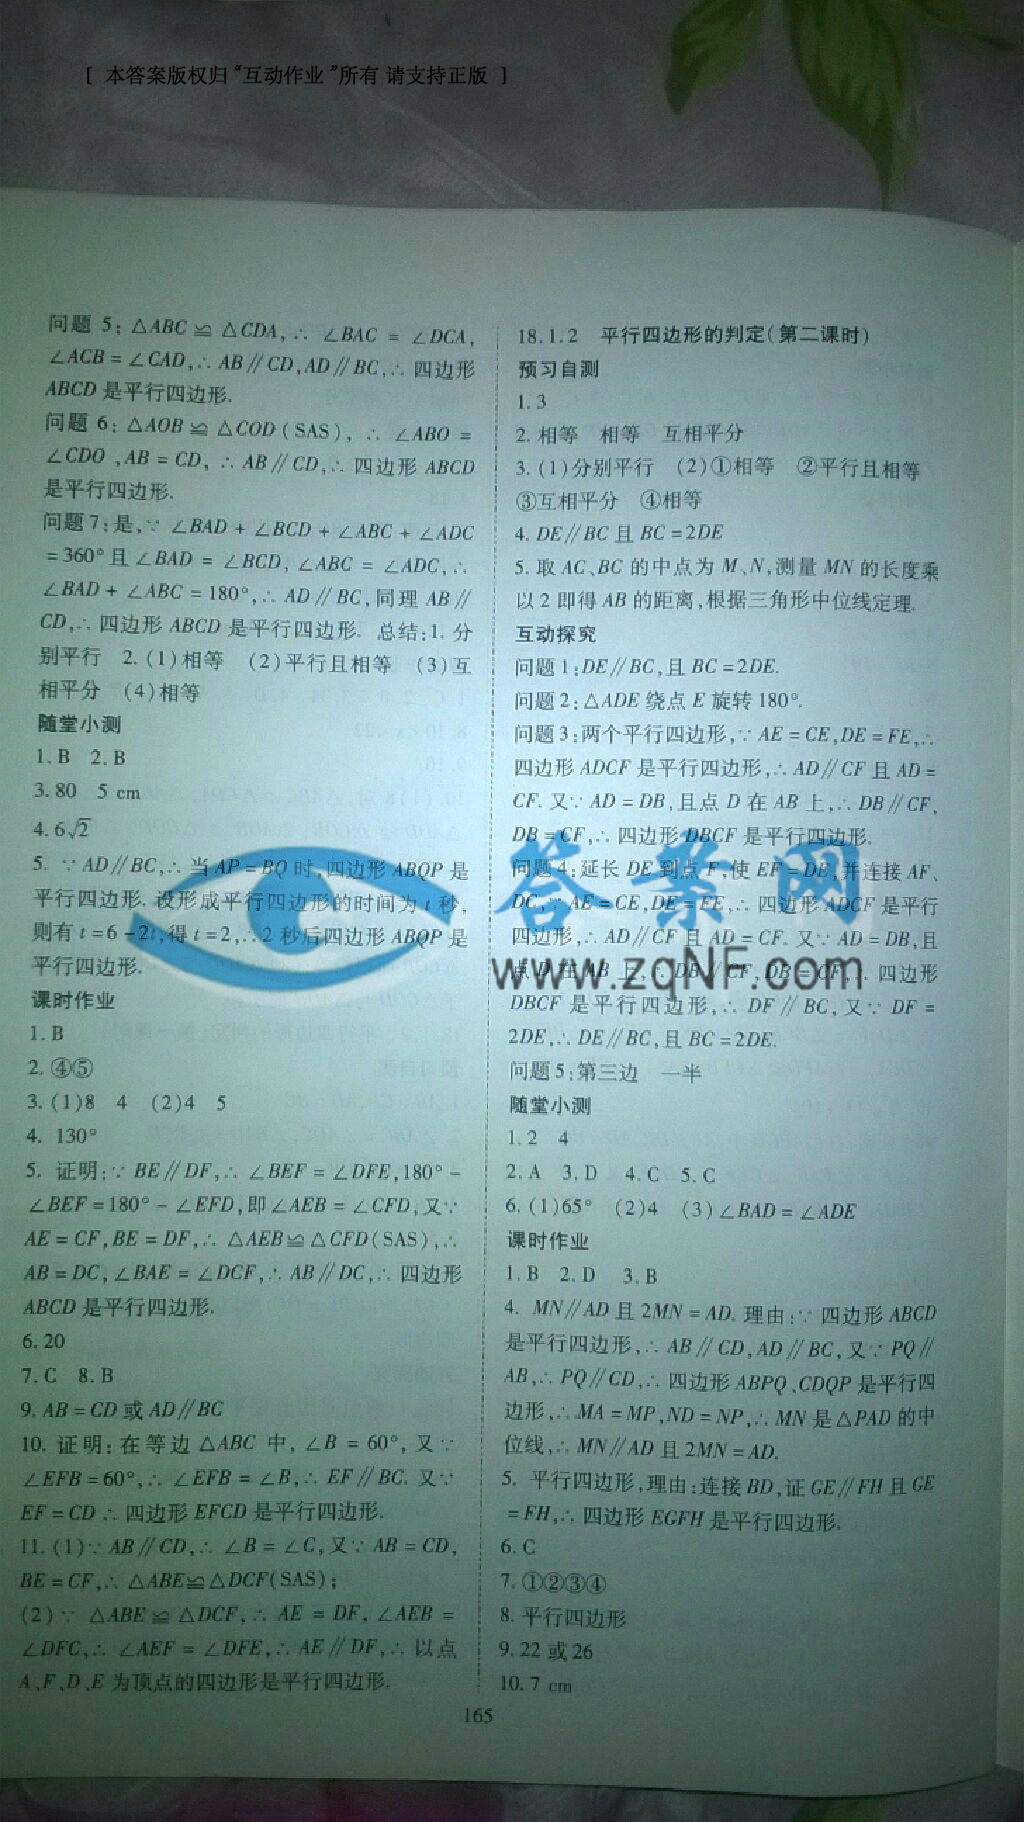 [ 本答案版权归 “互动作业 ”所有 请支持正版 ]
问题 5：△ABC≌△CDA，∴ ∠BAC = ∠DCA，
∠ACB = ∠CAD，∴ AB∥CD，AD∥BC，∴ 四边形
ABCD 是平行四边形.
问题 6：△AOB ≌ △COD（SAS），∴ ∠ABO =
∠CDO ，AB = CD，∴ AB∥CD，∴ 四边形 ABCD
是平行四边形.
问题 7：是，∵ ∠BAD + ∠BCD + ∠ABC + ∠ADC
= 360° 且 ∠BAD = ∠BCD，∠ABC = ∠ADC，∴
∠BAD + ∠ABC = 180°，∴ AD∥BC，同理 AB∥
CD，∴ 四边形 ABCD 是平行四边形. 总结：1. 分
别平行 2.（1）相等 （2）平行且相等 （3）互
相平分 （4）相等
随堂小测
1. B 2. B
3. 80 5 cm
4. 6√2
5. ∵ AD∥BC，∴ 当 AP = BQ 时，四边形 ABQP 是
平行四边形. 设形成平行四边形的时间为 t 秒，
则有 t = 6 - 2t，得 t = 2，∴2 秒后四边形 ABQP 是
平行四边形.
课时作业
1. B
2. ④⑤
3.（1）8 4 （2）4 5
4. 130°
5. 证明：∵ BE∥DF，∴ ∠BEF = ∠DFE，180° -
∠BEF = 180° - ∠EFD，即∠AEB = ∠CFD，又∵
AE = CF，BE = DF，∴ △AEB≌△CFD（SAS），∴
AB = DC，∠BAE = ∠DCF，∴ AB∥DC，∴ 四边形
ABCD 是平行四边形.
6. 20
7. C 8. B
9. AB = CD 或 AD∥BC
10. 证明：在等边 △ABC 中，∠B = 60°，又∵
∠EFB = 60°，∴ ∠EFB = ∠B，∴ EF∥BC. 又∵
EF = CD ∴ 四边形 EFCD 是平行四边形.
11.（1）∵ AB∥CD，∴ ∠B = ∠C，又∵ AB = CD，
BE = CF，∴ △ABE≌△DCF（SAS）；
（2）∵ △ABE ≌ △DCF，∴ AE = DF，∠AEB =
∠DFC，∴ ∠AEF = ∠DFE，∴ AE∥DF，∴ 以点
A、F、D、E 为顶点的四边形是平行四边形.
18.1.2 平行四边形的判定（第二课时）
预习自测
1. 3
2. 相等 相等 互相平分
3.（1）分别平行 （2）①相等 ②平行且相等
③互相平分 ④相等
4. DE∥BC 且 BC = 2DE
5. 取 AC、BC 的中点为 M、N，测量 MN 的长度乘
以 2 即得 AB 的距离，根据三角形中位线定理.
互动探究
问题 1：DE∥BC，且 BC = 2DE.
问题 2：△ADE 绕点 E 旋转 180°.
问题 3：两个平行四边形，∵ AE = CE，DE = FE，∴
四边形 ADCF 是平行四边形，∴ AD∥CF 且 AD =
CF. 又∵ AD = DB，且点 D 在 AB 上，∴ DB∥CF，
DB = CF，∴ 四边形 DBCF 是平行四边形.
问题 4：延长 DE 到点 F，使 EF = DE，并连接 AF、
DC，∵ AE = CE，DE = FE，∴ 四边形 ADCF 是平行
四边形，∴ AD∥CF 且 AD = CF. 又∵ AD = DB，且
点 D 在 AB 上，∴ DB∥CF，DB = CF，∴ 四边形
DBCF 是平行四边形，∴ DF∥BC，又∵ DF =
2DE，∴ DE∥BC，且 BC = 2DE.
问题 5：第三边 一半
随堂小测
1. 2 4
2. A 3. D 4. C 5. C
6.（1）65° （2）4 （3）∠BAD = ∠ADE
课时作业
1. B 2. D 3. B
4. MN∥AD 且 2MN = AD。理由：∵ 四边形 ABCD
是平行四边形，∴ AB∥CD，AD∥BC，又∵ PQ∥
AB，∴ PQ∥CD，∴ 四边形 ABPQ、CDQP 是平行四
边形，∴ MA = MP，ND = NP，∴ MN 是△PAD 的中
位线，∴ MN∥AD 且 2MN = AD.
5. 平行四边形，理由：连接 BD，证 GE∥FH 且 GE
= FH，∴ 四边形 EGFH 是平行四边形.
6. C
7. ①②③④
8. 平行四边形
9. 22 或 26
10. 7 cm
165
答案网
www.zqNF.com